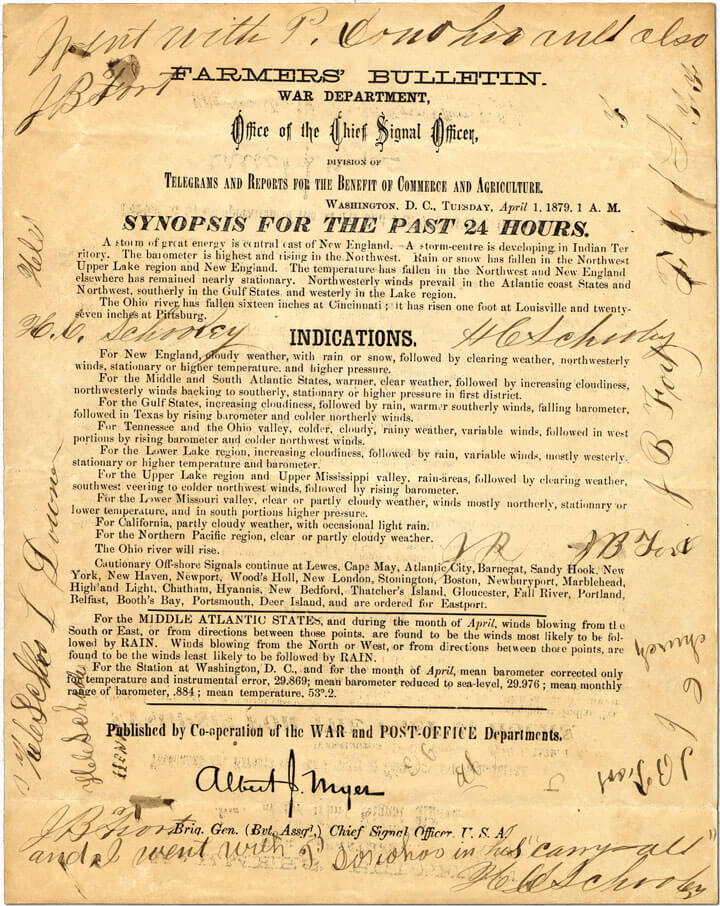 Went with P. Donohoo and also
J B Fort
FARMERS' BULLETIN.
WAR DEPARTMENT,
Office of the Chief Signal Officer,
DIVISION OF
TELEGRAMS AND REPORTS FOR THE BENEFIT OF COMMERCE AND AGRICULTURE.
WASHINGTON, D. C., TUESDAY, April 1, 1879, 1 A. M.
SYNOPSIS FOR THE PAST 24 HOURS.
A storm of great energy is central east of New England. A storm-centre is developing in Indian Ter
ritory. The barometer is highest and rising in the Northwest. Rain or snow has fallen in the Northwest
Upper Lake region and New England. The temperature has fallen in the Northwest and New England
elsewhere has remained nearly stationary. Northwesterly winds prevail in the Atlantic coast States and
Northwest, southerly in the Gulf States, and westerly in the Lake region.
The Ohio river has fallen sixteen inches at Cincinnati; it has risen one foot at Louisville and twenty-
seven inches at Pittsburg.
H. C. Schooley
H C Schooley
INDICATIONS.
For New England, cloudy weather, with rain or snow, followed by clearing weather, northwesterly
winds, stationary or higher temperature, and higher pressure.
For the Middle and South Atlantic States, warmer, clear weather, followed by increasing cloudiness,
northwesterly winds backing to southerly, stationary or higher pressure in first district.
For the Gulf States, increasing cloudiness, followed by rain, warmer southerly winds, falling barometer,
followed in Texas by rising barometer and colder northerly winds.
For Tennessee and the Ohio valley, colder, cloudy, rainy weather, variable winds, followed in west
portions by rising barometer and colder northwest winds.
For the Lower Lake region, increasing cloudiness, followed by rain, variable winds, mostly westerly,
stationary or higher temperature and barometer.
For the Upper Lake region and Upper Mississippi valley, rain-areas, followed by clearing weather,
southwest veering to colder northwest winds, followed by rising barometer.
For the Lower Missouri valley, clear or partly cloudy weather, winds mostly northerly, stationary or
lower temperature, and in south portions higher pressure.
For California, partly cloudy weather, with occasional light rain.
For the Northern Pacific region, clear or partly cloudy weather.
The Ohio river will rise.
J B Fort
Cautionary Off-shore Signals continue at Lewes, Cape May, Atlantic City, Barnegat, Sandy Hook, New
York, New Haven, Newport, Wood's Holl, New London, Stonington, Boston, Newburyport, Marblehead,
Highland Light, Chatham, Hyannis, New Bedford, Thatcher's Island, Gloucester, Fall River, Portland,
Belfast, Booth's Bay, Portsmouth, Deer Island, and are ordered for Eastport.
For the MIDDLE ATLANTIC STATES, and during the month of April, winds blowing from the
South or East, or from directions between those points, are found to be the winds most likely to be fol-
lowed by RAIN. Winds blowing from the North or West, or from directions between those points, are
found to be the winds least likely to be followed by RAIN.
For the Station at Washington, D. C., and for the month of April, mean barometer corrected only
for temperature and instrumental error, 29.869; mean barometer reduced to sea-level, 29.976; mean monthly
range of barometer, .884; mean temperature, 53°.2.
Published by Co-operation of the WAR and POST-OFFICE Departments.
Albert J. Myer
Brig. Gen. (Bvt. Assg'd,) Chief Signal Officer, U. S. A.
J B Fort
and I went with P Donohoo in his "carry-all"
H C Schooley
J B Fort
church
J B Fort